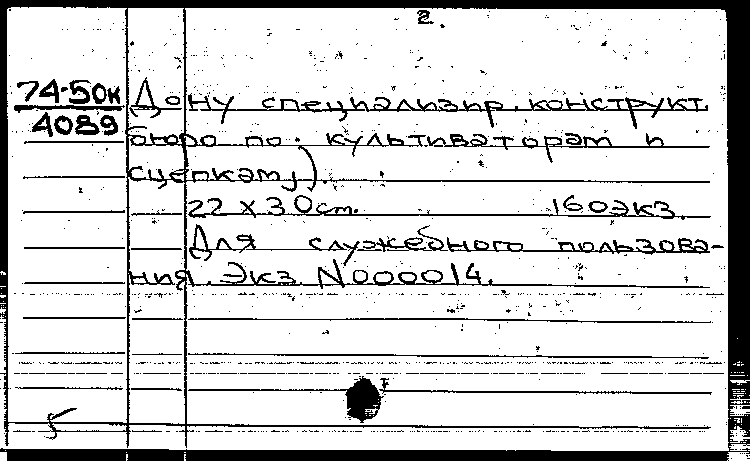 2.
74-50к
4089
Дону специализир. конструкт.
бюро по культиваторам и
сцепкам).
22 х 30 см. 160 экз.
Для служебного пользова-
ния. Экз. N000014.
5